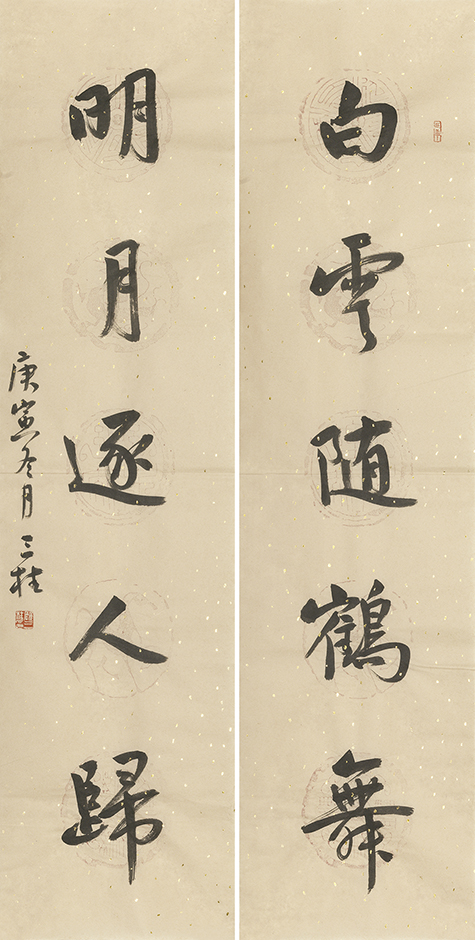 白雲随鶴舞
明月逐人歸
庚寅冬月三桂